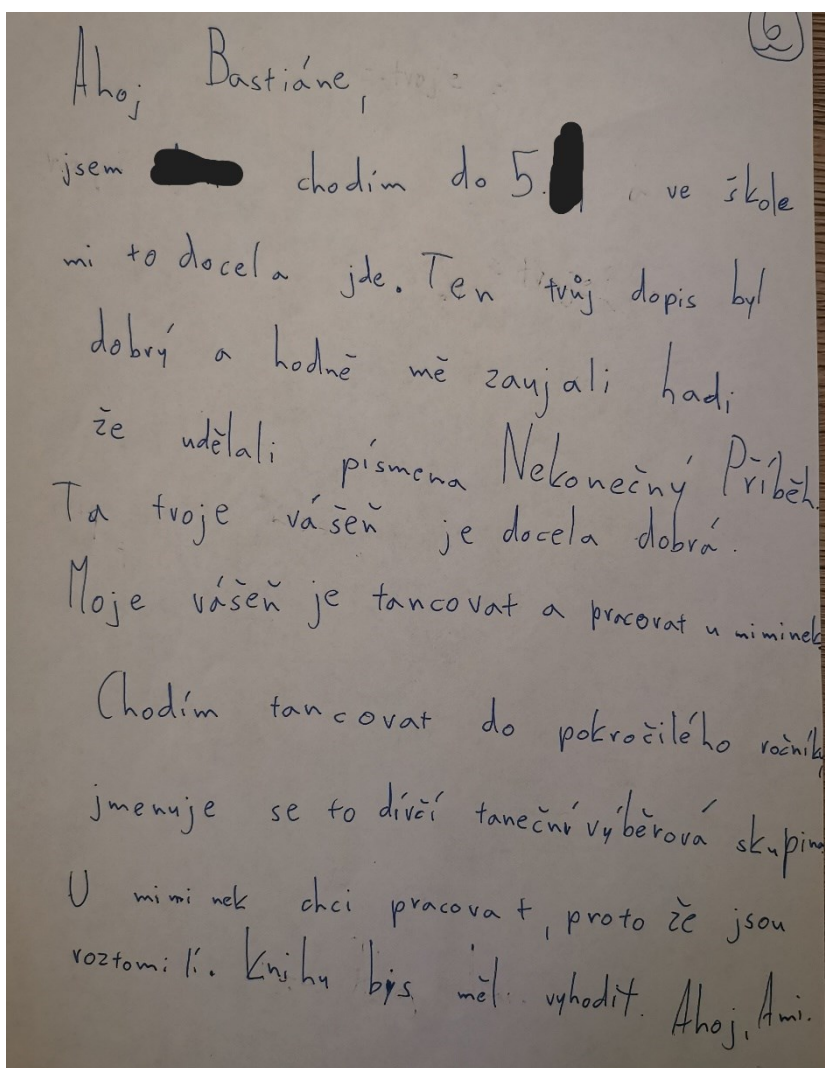 6
Ahoj Bastiáne,
jsem chodím do 5. ve škole
mi to docela jde. Ten tvůj dopis byl
dobrý a hodně mě zaujali hadi
že udělali písmena Nekonečný Příběh.
Ta tvoje vášeň je docela dobrá.
Moje vášeň je tancovat a pracovat u miminek
Chodím tancovat do pokročilého ročníku
jmenuje se to dívčí taneční výběrová skupina
U miminek chci pracovat, proto že jsou
roztomilí. Knihu bys měl vyhodit. Ahoj, Ami.